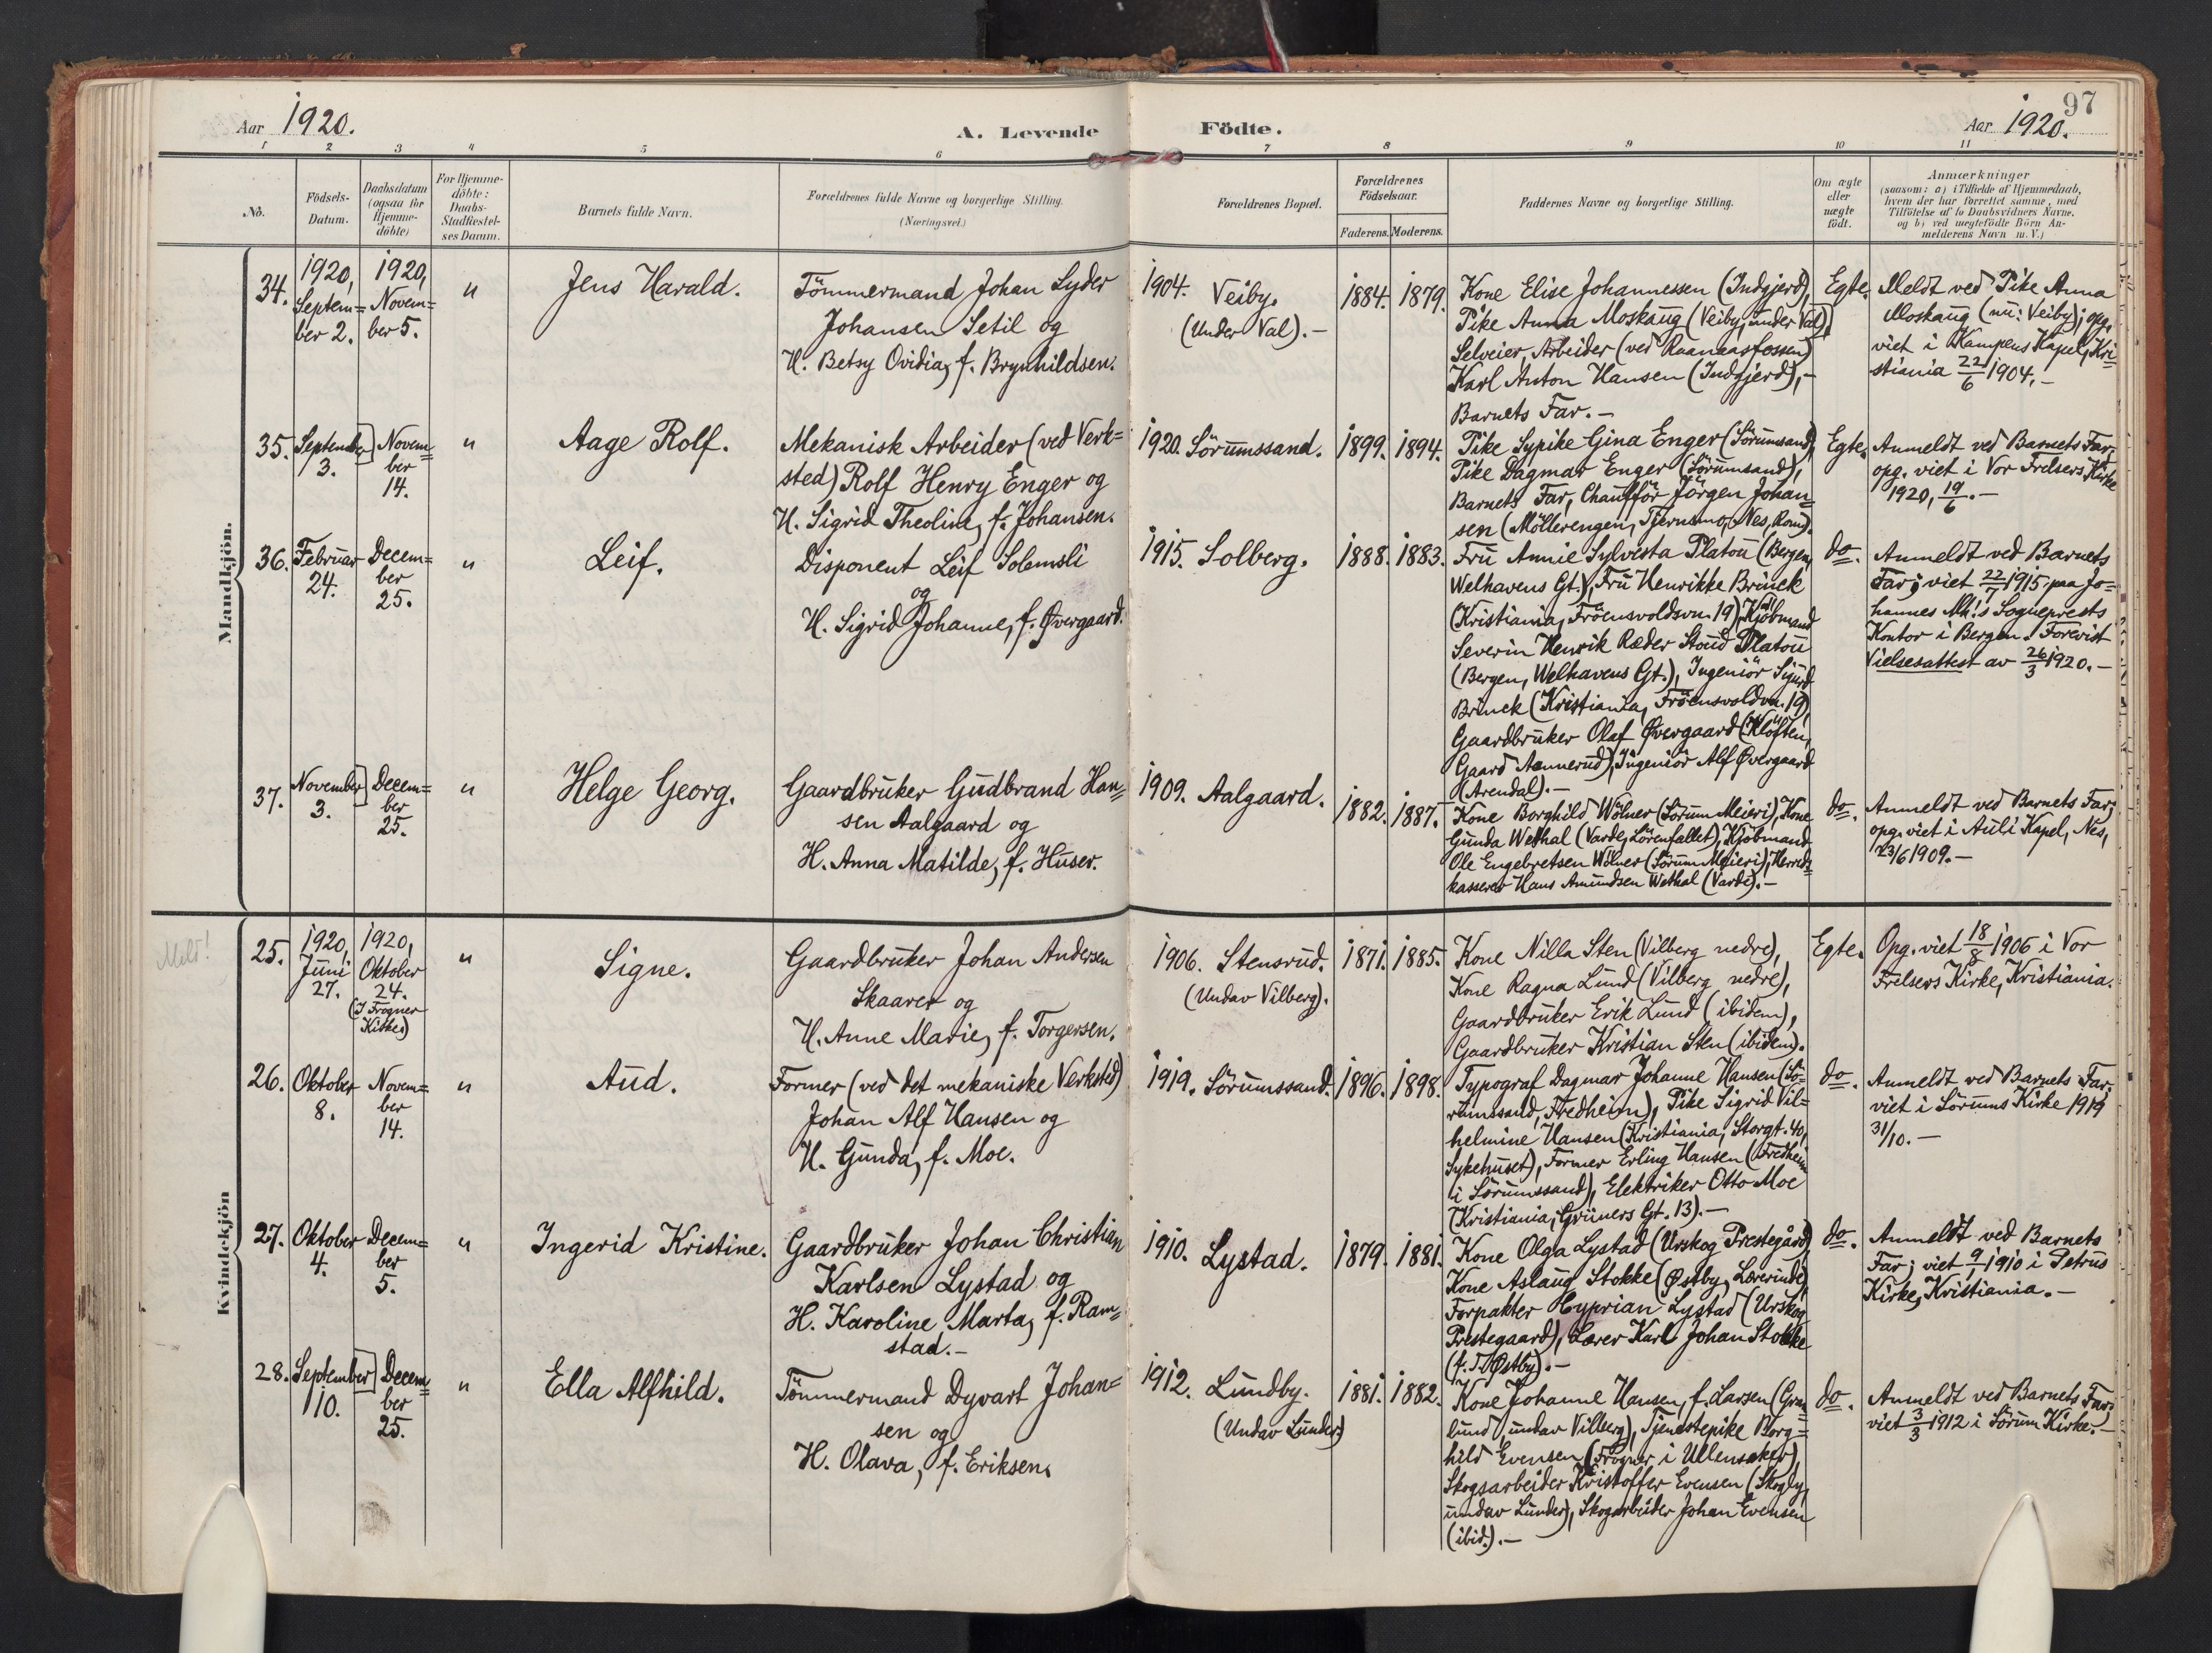 97
Aar 1920.
A. Levende Födte.
Aar 1920.
1 2 3 4 5 6 7 8 9 10 11
No.
Födsels-
Datum.
Daabsdatum
(ogsaa for
Hjemme-
döbte)
For Hjemme-
döbte:
Daabs-
Stadfæstel-
ses Datum.
Barnets fulde Navn.
Forældrenes fulde Navne og borgerlige Stilling.
(Næringsvei.)
Forældrenes Bopæl.
Forældrenes
Födselsaar.
Faderens. Moderens.
Faddernes Navne og borgerlige Stilling.
Om ægte
eller
uægte
födt.
Anmærkninger
(saasom: a) i Tilfælde af Hjemmedaab,
hvem der har forrettet samme, med
Tilföielse af to Daabsvidners Navne.
og b) ved uægtefödte Börn An-
melderens Navn m. V.)
Mandkjön.
34.
1920,
Septem=
ber 2.
1920,
Novem=
ber 5.
"
Jens Harald.
Tömmermand Johan Lyder
Johansen Setil og
H. Betsy Ovidia, f. Brynhildsen.
1904. Veiby.
(Under Val).-
1884. 1879.
Kone Elise Johannessen (Indgjerd),
Pike Anna Moskaug (Veiby, under Val),
Selveier, Arbeider (ved Raanaasfossen)
Karl Anton Hansen (Indgjerd),-
Barnets Far.-
Egte.
Meldt ved Pike Anna
Moskaug (nu: Veiby); opg.
viet i Kampens Kapel, Kri=
stiania 22/6 1904.-
35.
September
3.
Novem=
ber
14.
"
Aage Rolf.
Mekanisk Arbeider (ved Verk=
sted) Rolf Henry Enger og
H. Sigrid Theoline, f. Johansen.
1920. Sörumssand.
1899. 1894.
Pike Sypike Gina Enger (Sörumsand),
Pike Dagmar Enger (Sörumsand),
Barnets Far, Chauffför Jörgen Johan=
sen (Möllerengen, Tjernsmo, Nes, Rom).
Egte.
Anmeldt ved Barnets Far,
opg. viet i Vor Frelsers Kirke
1920, 19/6.-
36.
Februar
24.
Decem=
ber
25.
"
Leif.
Disponent Leif Solemsli
og
H. Sigrid Johanne, f. Øvergaard.
1915. Solberg.
1888. 1883.
Fru Annie Sylvesta Platou (Bergen,
Welhavens Gt.), Fru Henrikke Brinck
(Kristiania, Fröensvoldsvn. 19), Kjöbmand
Severin Henrik Ræder Stoud Platou
(Bergen, Welhavens Gt.), Ingeniör Sigurd
Brinck (Kristiania, Fröensvoldvn. 19),
Gaardbruker Olaf Øvergaard (Klöften,
Gaard Aannerud), Ingeniör Alf Øvergaard
(Arendal).-
do.
Anmeldt ved Barnets
Far; viet 22/7 1915 paa Jo=
hannes Mh!s Sogneprests
Kontor i Bergen. Forevist
Vielsesattest av 26/3 1920.-
37.
November
3.
Decem=
ber
25.
"
Helge Georg.
Gaardbruker Gudbrand Han=
sen Aalgaard og
H. Anna Matilde, f. Huser.
1909. Aalgaard.
1882. 1887.
Kone Borghild Wölner (Sörum Meieri), Kone
Gunda Wethal (Varde, Lörenfallet), Kjöbmand
Ole Engebretsen Wölner (Sörum Meieri), Herreds=
kasserer Hans Amundsen Wethal (Varde).-
do.
Anmeldt ved Barnets Far;
opg. viet i Auli Kapel, Nes,
23/6 1909.-
Kvindekjön
Meld!
25.
1920,
Juni
27.
1920,
Oktober
24.
(I Frogner
Kirke)
"
Signe.
Gaardbruker Johan Andersen
Skaarer og
H. Anne Marie, f. Torgersen.
1906. Stensrud.
(Undav Vilberg).
1871. 1885.
Kone Nilla Sten (Vilberg nedre),
Kone Ragna Lund (Vilberg nedre),
Gaardbruker Erik Lund (ibidem),
Gaardbruker Kristian Sten (ibidem).
Egte.
Opg. viet 18/8 1906 i Vor
Frelsers Kirke, Kristiania.
26.
Oktober
8.
Novem=
ber
14.
"
Aud.
Former (ved det mekaniske Verksted)
Johan Alf Hansen og
H. Gunda, f. Moe.
1919. Sörumssand.
1896. 1898.
Typograf Dagmar Johanne Hansen (Sö=
rumssand, Fredheim), Pike Sigrid Vil=
helmine Hansen (Kristiania, Storgt. 40,
Sykehuset), Former Erling Hansen (Fredheim
i Sörumssand), Elektriker Otto Moe
(Kristiania, Grüners Gt. 13).-
do.
Anmeldt ved Barnets Far;
viet i Sörums Kirke 1919
31/10.-
27.
Oktober
4.
Decem=
ber
5.
"
Ingerid Kristine.
Gaardbruker Johan Christian
Karlsen Lystad og
H. Karoline Marta, f. Ram=
stad.-
1910. Lystad.
1879. 1881.
Kone Olga Lystad (Urskog Prestegård),
Kone Aslaug Stokke (Østby, Lærerinde),
Forpakter Cyprian Lystad (Urskog
Prestegaard), Lærer Karl Johan Stokke
(f. T. Østby).-
do.
Anmeldt ved Barnets
Far; viet 9/7 1910 i Petrus
Kirke, Kristiania.-
28.
September
10.
Decem=
ber
25.
"
Ella Alfhild.
Tömmermand Dyvart Johan=
sen og
H. Olava, f. Eriksen.
1912. Lundby.
(Undav Lunder)
1881. 1882.
Kone Johanne Hansen, f. Larsen (Gran=
lund, undav Vilberg), Tjenestepike Borg=
hild Evensen (Frogner i Ullensaker),
Skogsarbeider Kristoffer Evensen (Skogly,
undav Lunder), Skogarbeider Johan Evensen
(ibid.).-
do.
Anmeldt ved Barnets Far;
viet 3/3 1912 i Sörum Kirke.-